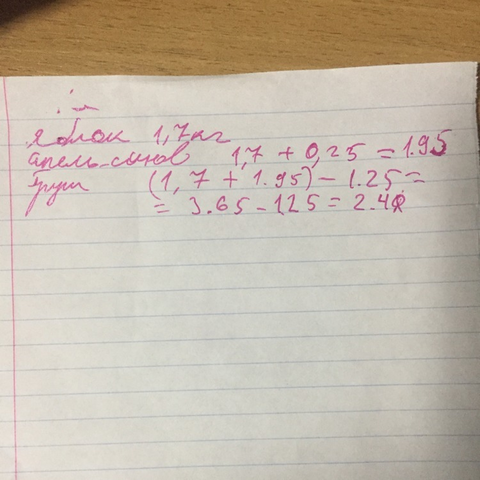 яблок 1,7кг
апельсинов 1,7 + 0,25 = 1.95
груш (1,7 + 1.95) - 1.25 =
= 3.65 - 125 = 2.40